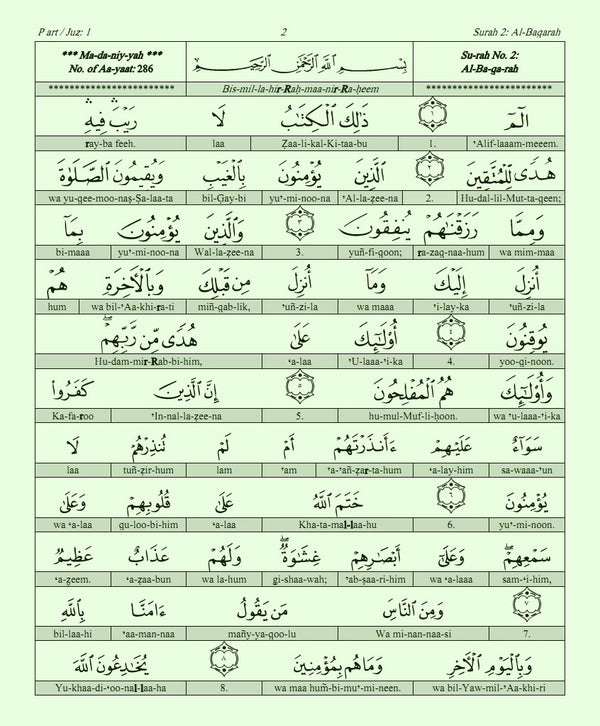 Part / Juz: 1 2 Surah 2: Al-Baqarah
*** Ma-da-niy-yah *** بِسْمِ ٱللَّهِ ٱلرَّحْمَٰنِ ٱلرَّحِيمِ Su-rah No. 2:
No. of Aa-yaat: 286 Al-Ba-qa-rah
************************ Bis-mil-la-hir-Raḥ-maa-nir-Ra-ḥeem ************************
الٓمٓ ١ ذَٰلِكَ ٱلْكِتَٰبُ لَا رَيْبَ ۛ فِيهِ ۛ
ray-ba feeh. laa Zaa-li-kal-Ki-taa-bu 1. 'Alif-laaam-meeem.
هُدًى لِّلْمُتَّقِينَ ٢ ٱلَّذِينَ يُؤْمِنُونَ بِٱلْغَيْبِ وَيُقِيمُونَ ٱلصَّلَوٰةَ
wa yu-qee-moo-naṣ-Ṣa-laa-ta bil-Ġay-bi yu'-mi-noo-na 'Al-la-zee-na 2. Hu-dal-lil-Mut-ta-qeen;
وَمِمَّا رَزَقْنَٰهُمْ يُنفِقُونَ ٣ وَٱلَّذِينَ يُؤْمِنُونَ بِمَآ
bi-maaa yu'-mi-noo-na Wal-la-zee-na 3. yuñ-fi-qoon; ra-zaq-naa-hum wa mim-maa
أُنزِلَ إِلَيْكَ وَمَآ أُنزِلَ مِن قَبْلِكَ وَبِٱلْءَاخِرَةِ هُمْ
hum wa bil-'Aa-khi-ra-ti miñ-qab-lik, 'uñ-zi-la wa maaa 'i-lay-ka 'uñ-zi-la
يُوقِنُونَ ٤ أُو۟لَٰٓئِكَ عَلَىٰ هُدًى مِّن رَّبِّهِمْ ۖ
Hu-dam-mir-Rab-bi-him, ʻa-laa 'U-laaa-'i-ka 4. yoo-qi-noon.
وَأُو۟لَٰٓئِكَ هُمُ ٱلْمُفْلِحُونَ ٥ إِنَّ ٱلَّذِينَ كَفَرُوا۟
Ka-fa-roo 'In-nal-la-zee-na 5. hu-mul-Muf-li-ḥoon. wa 'u-laaa-'i-ka
سَوَآءٌ عَلَيْهِمْ ءَأَنذَرْتَهُمْ أَمْ لَمْ تُنذِرْهُمْ لَا
laa tuñ-zir-hum lam 'am 'a-'añ-zar-ta-hum ʻa-lay-him sa-waaa-'un
يُؤْمِنُونَ ٦ خَتَمَ ٱللَّهُ عَلَىٰ قُلُوبِهِمْ وَعَلَىٰ
wa ʻa-laa qu-loo-bi-him ʻa-laa Kha-ta-mal-laa-hu 6. yu'-mi-noon.
سَمْعِهِمْ ۖ وَعَلَىٰٓ أَبْصَٰرِهِمْ غِشَٰوَةٌ ۖ وَلَهُمْ عَذَابٌ عَظِيمٌ
ʻa-zeem. ʻa-zaa-bun wa la-hum gi-shaa-wah; 'ab-ṣaa-ri-him wa ʻa-laaa sam-ʻi-him,
٧ وَمِنَ ٱلنَّاسِ مَن يَقُولُ ءَامَنَّا بِٱللَّهِ
bil-laa-hi 'aa-man-naa mañy-ya-qoo-lu Wa mi-nan-naa-si 7.
وَبِٱلْيَوْمِ ٱلْءَاخِرِ وَمَا هُم بِمُؤْمِنِينَ ٨ يُخَٰدِعُونَ ٱللَّهَ
Yu-khaa-di-ʻoo-nal-laa-ha 8. wa maa hum̃-bi-mu'-mi-neen. wa bil-Yaw-mil-'Aa-khi-ri